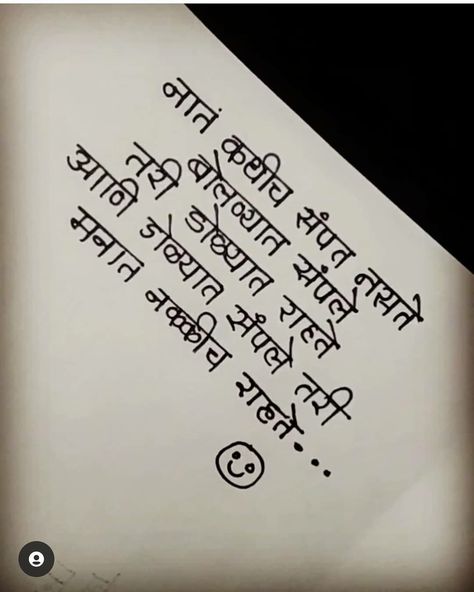 नातं कधीच संपत नसते
बोलण्यात संपले
तरी डोळ्यात राहते
आणि डोळ्यात संपले तरी
मनात नक्कीच राहते...